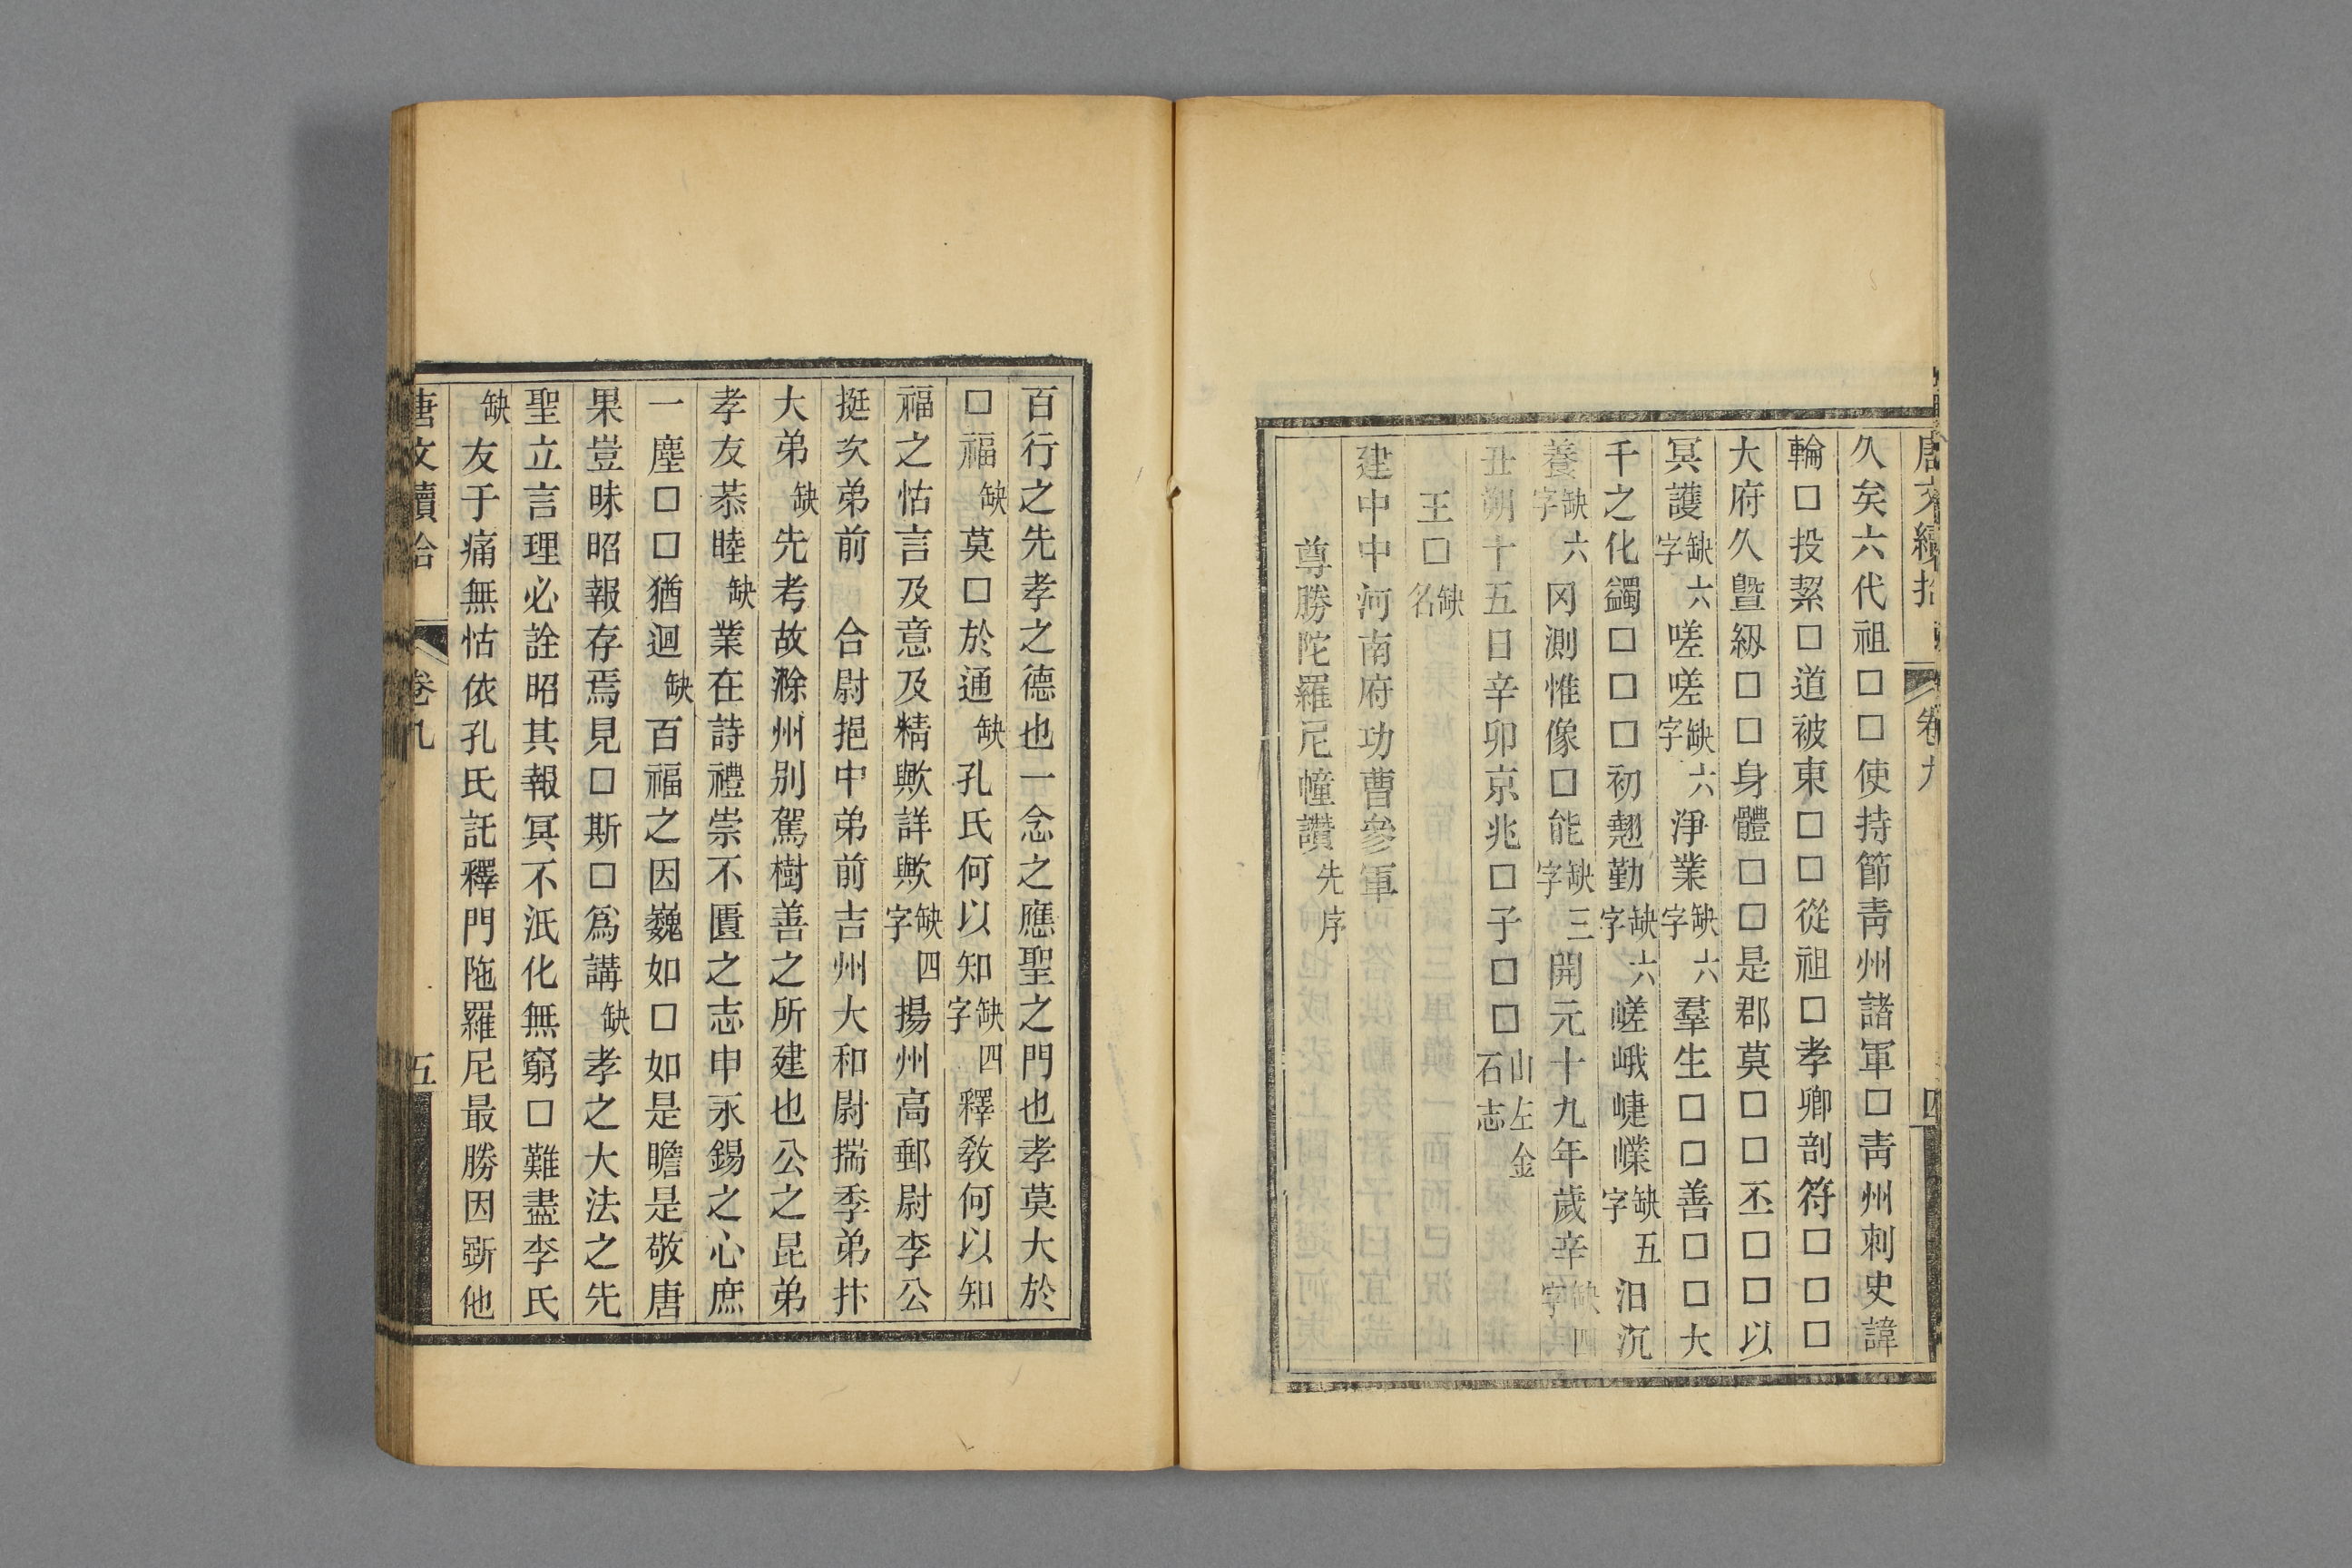 唐文續拾 卷九 四
久矣六代祖□□使持節靑州諸軍□靑州刺史諱
輪□投絜□道被東□□從祖□孝卿剖符□□□
大府久曁紉□□身體□□是郡莫□□丕□□以
冥護缺六字嗟嗟缺六字淨業缺六字羣生□□善□□大
千之化蠲□□□初翹勤缺六字嵯峨崨嶫缺五字汨沉
養缺六字冈測惟像□能缺三字開元十九年歲辛缺四字
丑朔十五日辛卯京兆□子□□山左金石志
王□缺名
建中中河南府功曹參軍
尊勝陀羅尼幢讚先序
百行之先孝之德也一念之應聖之門也孝莫大於
□福缺莫□於通缺孔氏何以知缺四字釋敎何以知
福之怙言及意及精歟詳歟缺四字揚州高郵尉李公
挺次弟前 合尉挹中弟前吉州大和尉揣季弟抃
大弟缺先考故滁州別駕樹善之所建也公之昆弟
孝友恭睦缺業在詩禮崇不匱之志申永錫之心庶
一塵□□猶迴缺百福之因巍如□如是瞻是敬唐
果豈昧昭報存焉見□斯□爲講缺孝之大法之先
聖立言理必詮昭其報冥不泯化無窮□難盡李氏
缺友于痛無怙依孔氏託釋門陁羅尼最勝因斲他
唐文續拾 卷九 五